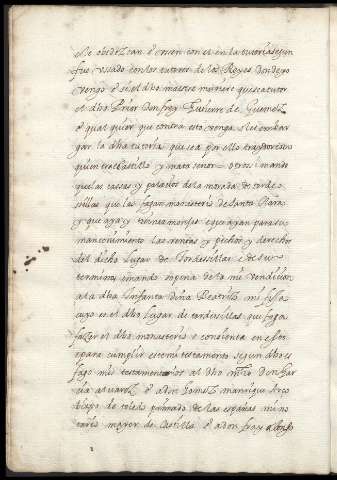 se obedezcan o crien con el en la tutoria segun
fue usado con los tutores de los Reyes donde yo
vengo o si el dho maestre muriere que sea tutor
el dho Prior Don frey Gutierre de
o qual quier que contra esto venga o le embar
gar la dha tutoria que sea por ello traydor como
quien trae Castillo y mata señor otrosi mando
que las casas y palacios de la morada de tordе
sillas que las fagan monasterio de Santa Clara
y que aya y treinta monjas e que ayan para su
mantenimiento las rentas y pechos y derechos
del dicho lugar de Tordesillas e de su
termino e mando so pena de la mi vendicion
a la dha Infanta doña Beatriz mi fija
cuyo es el dho lugar de tordesillas que faga
fazer el dho monasterio e consienta en esto
e para cumplir este mi testamento segun dho es
fago mis testamentarios al dho mtro Don Gar
cia alvarez e a don Gomez manrique Arço
bispo de toledo primado de las españas mi no
tario mayor de Castilla e a don fray Alonso